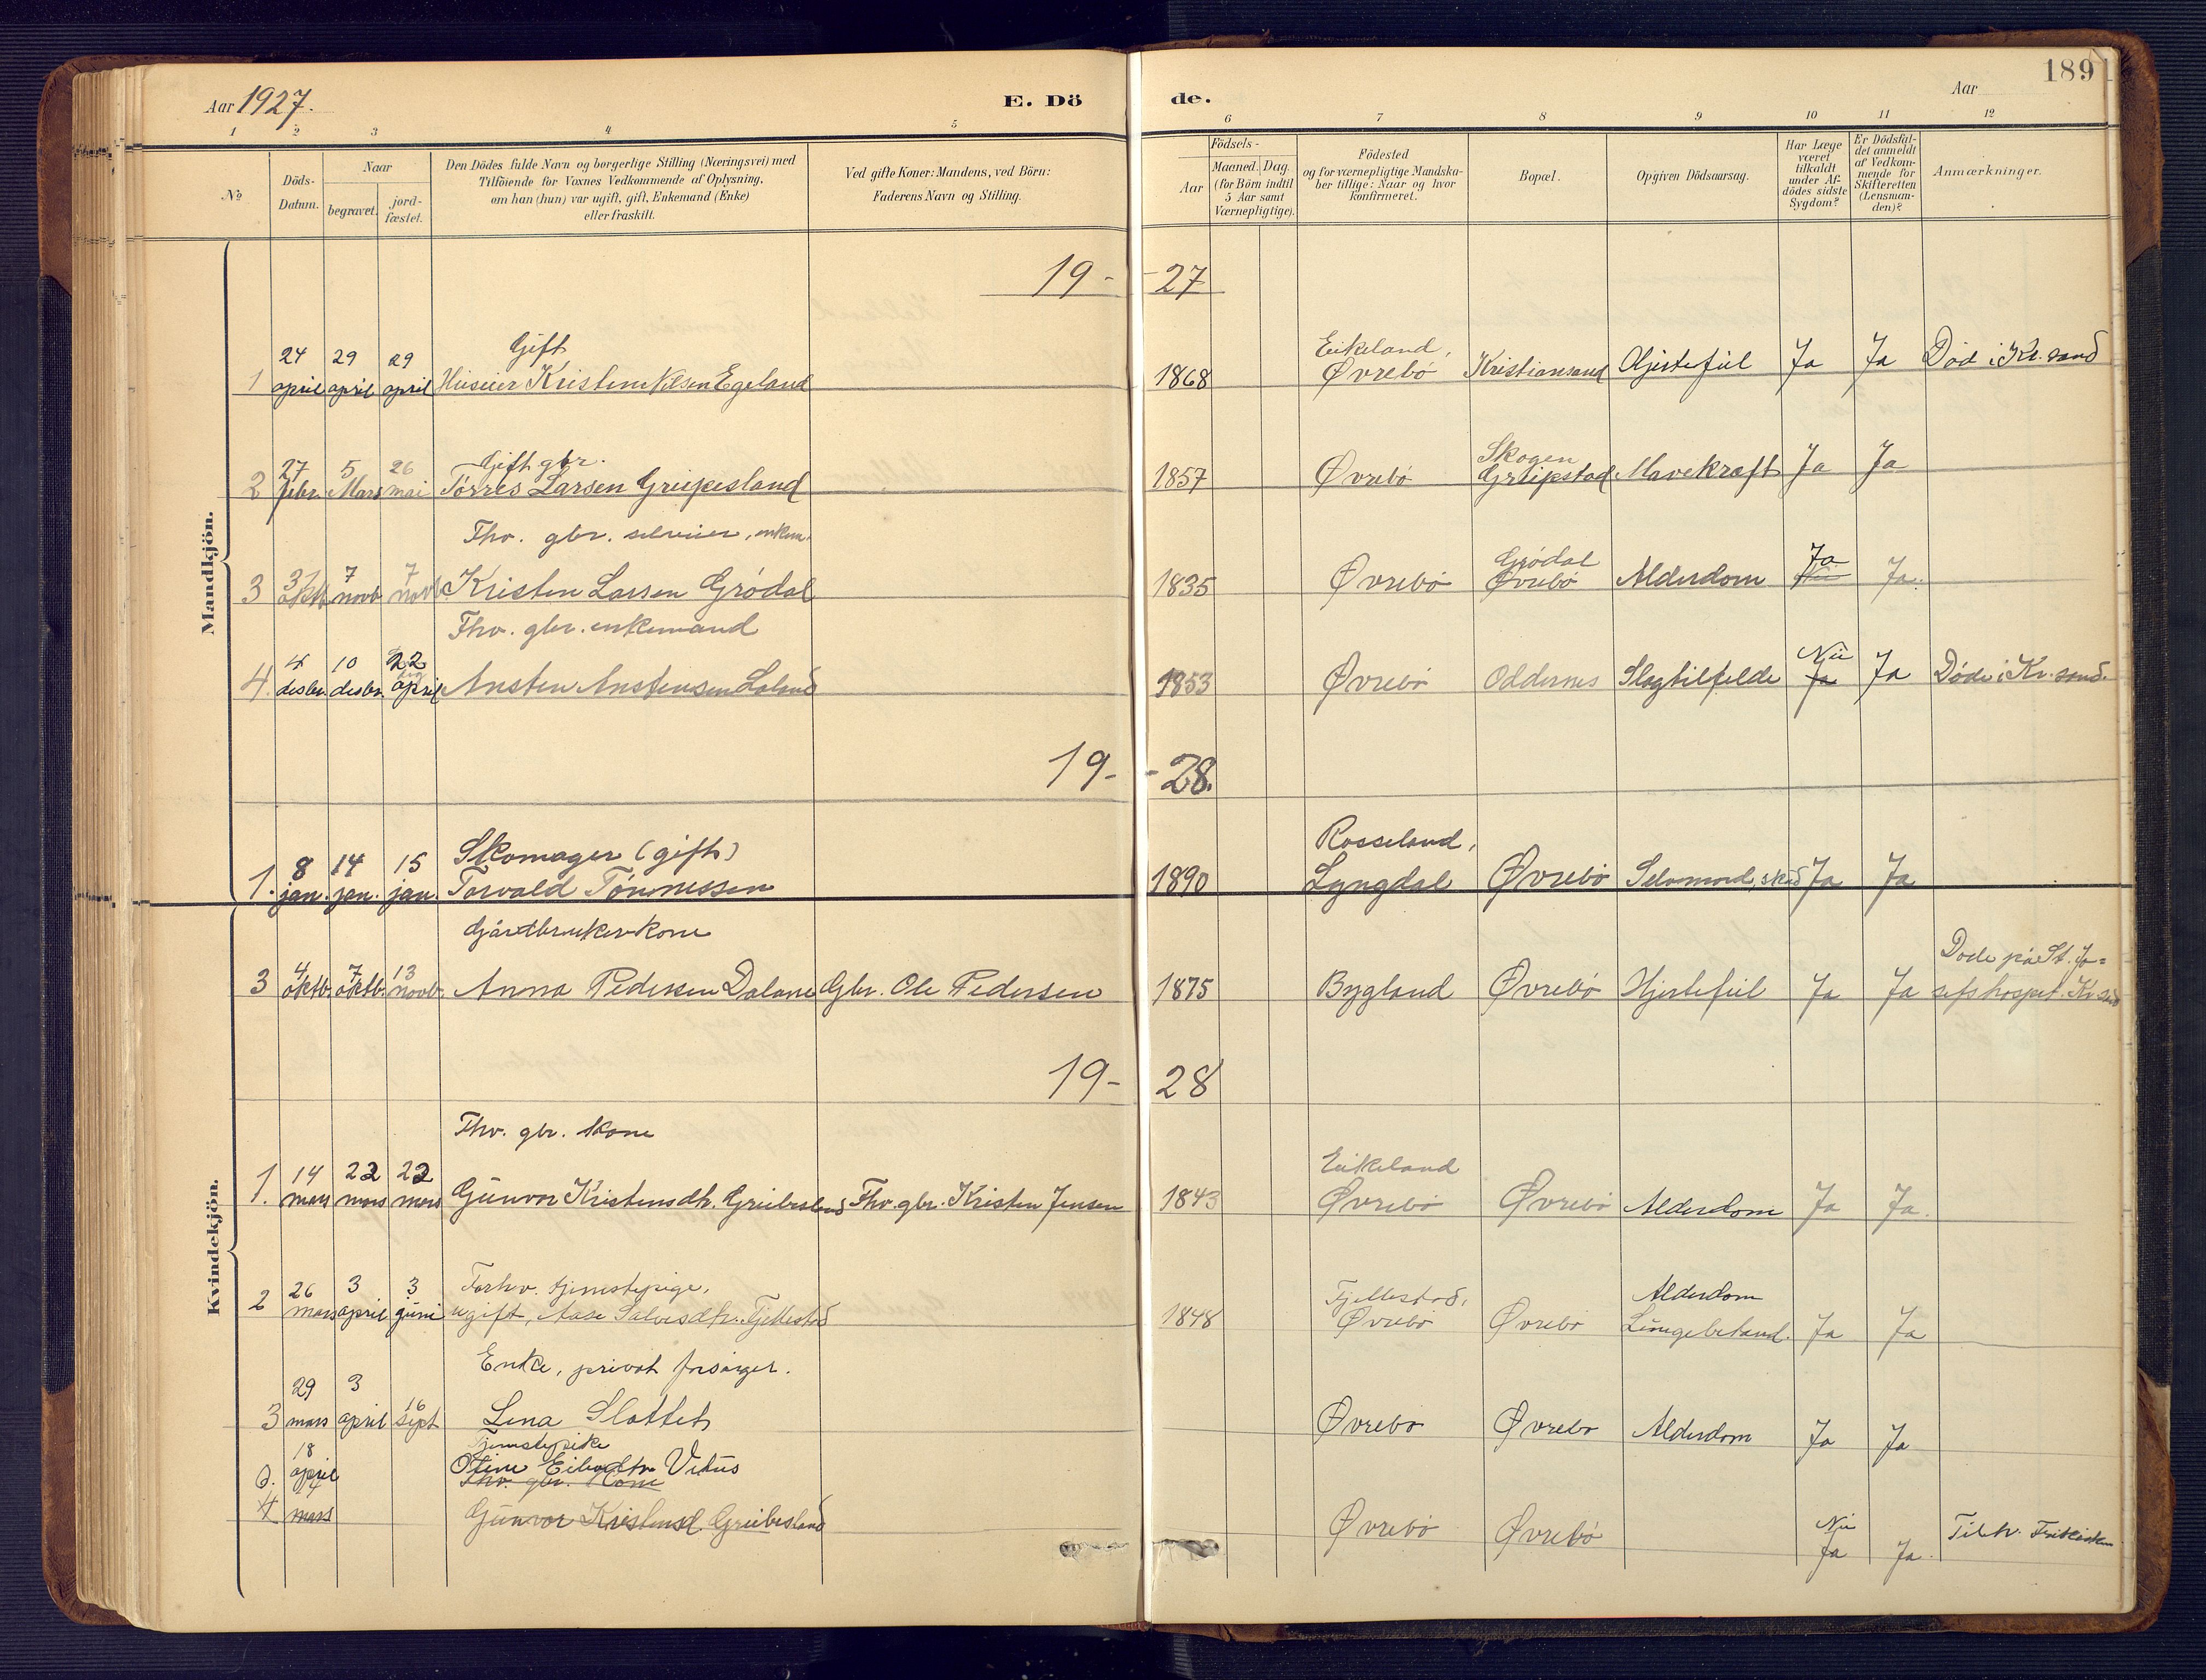 189
Aar 1927.
E. Dö
de.
Aar
1 2 3 4 5 6 7 8 9 10 11 12
No
Döds-
Datum.
Naar
begravet.
jord-
fæstet.
Den Dödes fulde Navn og borgerlige Stilling (Næringsvei) med
Tilföiende for Voxnes Vedkommende af Oplysning,
om han (hun) var ugift, gift, Enkemand (Enke)
eller fraskilt.
Ved gifte Koner: Mandens, ved Börn:
Faderens Navn og Stilling.
Födsels-
Aar
Maaned. Dag.
(for Börn indtil
5 Aar samt
Værnepligtige).
Födested
og for værnepligtige Mandska-
ber tillige: Naar og hvor
konfirmeret.
Bopæl.
Opgiven Dödsaarsag.
Har Læge
været
tilkaldt
under Af-
dödes sidste
Sygdom?
Er Dödsfal-
det anmeldt
af Vedkom-
mende for
Skifteretten
(Lensman-
den)?
Anmærkninger.
Mandkjön.
19- -27
24 29 29 Gift Eikeland,
1 april april april Huseier Kristen Nilsen Egeland 1868 Øvrebö Kristiansand Hjertefeil Ja Ja Død i Kr. sand
27 5 26 Gift gbr. Skogen
2 febr. Mars mai Törres Larsen Greipesland 1857 Øvrebö Greipstad Mavekræft Ja Ja
Fhv. gbr. selveier, enkem.
31 7 7 Grödal Ja
3 oktb. novb. novb. Kristen Larsen Grödal 1835 Øvrebö Øvrebö Alderdom Nei Ja.
Fhv. gbr. enkemand
4 10 22 Nei
4. desbr. desbr. april Ansten Anstensen Laland 1853 Øvrebö Oddernes Slagtilfelde Ja Ja Døde i Kr. sand.
19- -28.
8 14 15 Skomager (gift) Rosseland,
1. jan. jan. jan. Torvald Tönnessen 1890 Lyngdal Øvrebö Selvmord Ja Ja
Kvindekjön.
Gårdbrukerkone
4 7 13 Døde på St. Jo=
3 oktb. oktb. novb. Anna Pedersen Dalane Gbr. Ole Pedersen 1875 Bygland Øvrebö Hjertefeil Ja Ja sefs hospit. Kr. sand
19- 28
Fhv. gbr. kone
14 22 22 Eikeland
1. mars mars mars Gunvor Kristensdtr. Greibesland Fhv. gbr. Kristen Jensen 1843 Øvrebö Øvrebö Alderdom Ja Ja.
26 3 3 Forhv. tjenestepige, Fjellestad, Alderdom
2 mars april juni ugift, Aase Salvesdtr. Fjellestad 1848 Øvrebö Øvrebö Lungebetænd. Ja Ja
Enke, privat forsörget.
29 3 16
3 mars april sept Lina Slottet Øvrebö Øvrebö Alderdom Ja Ja
18 Tjenestepike
april Otine Vehus
Fhv. gbr. kone
4 mars Gunvor Kristensd. Greibesland Øvrebö Øvrebö Nei Ja Ja. Tilh. Frikirken